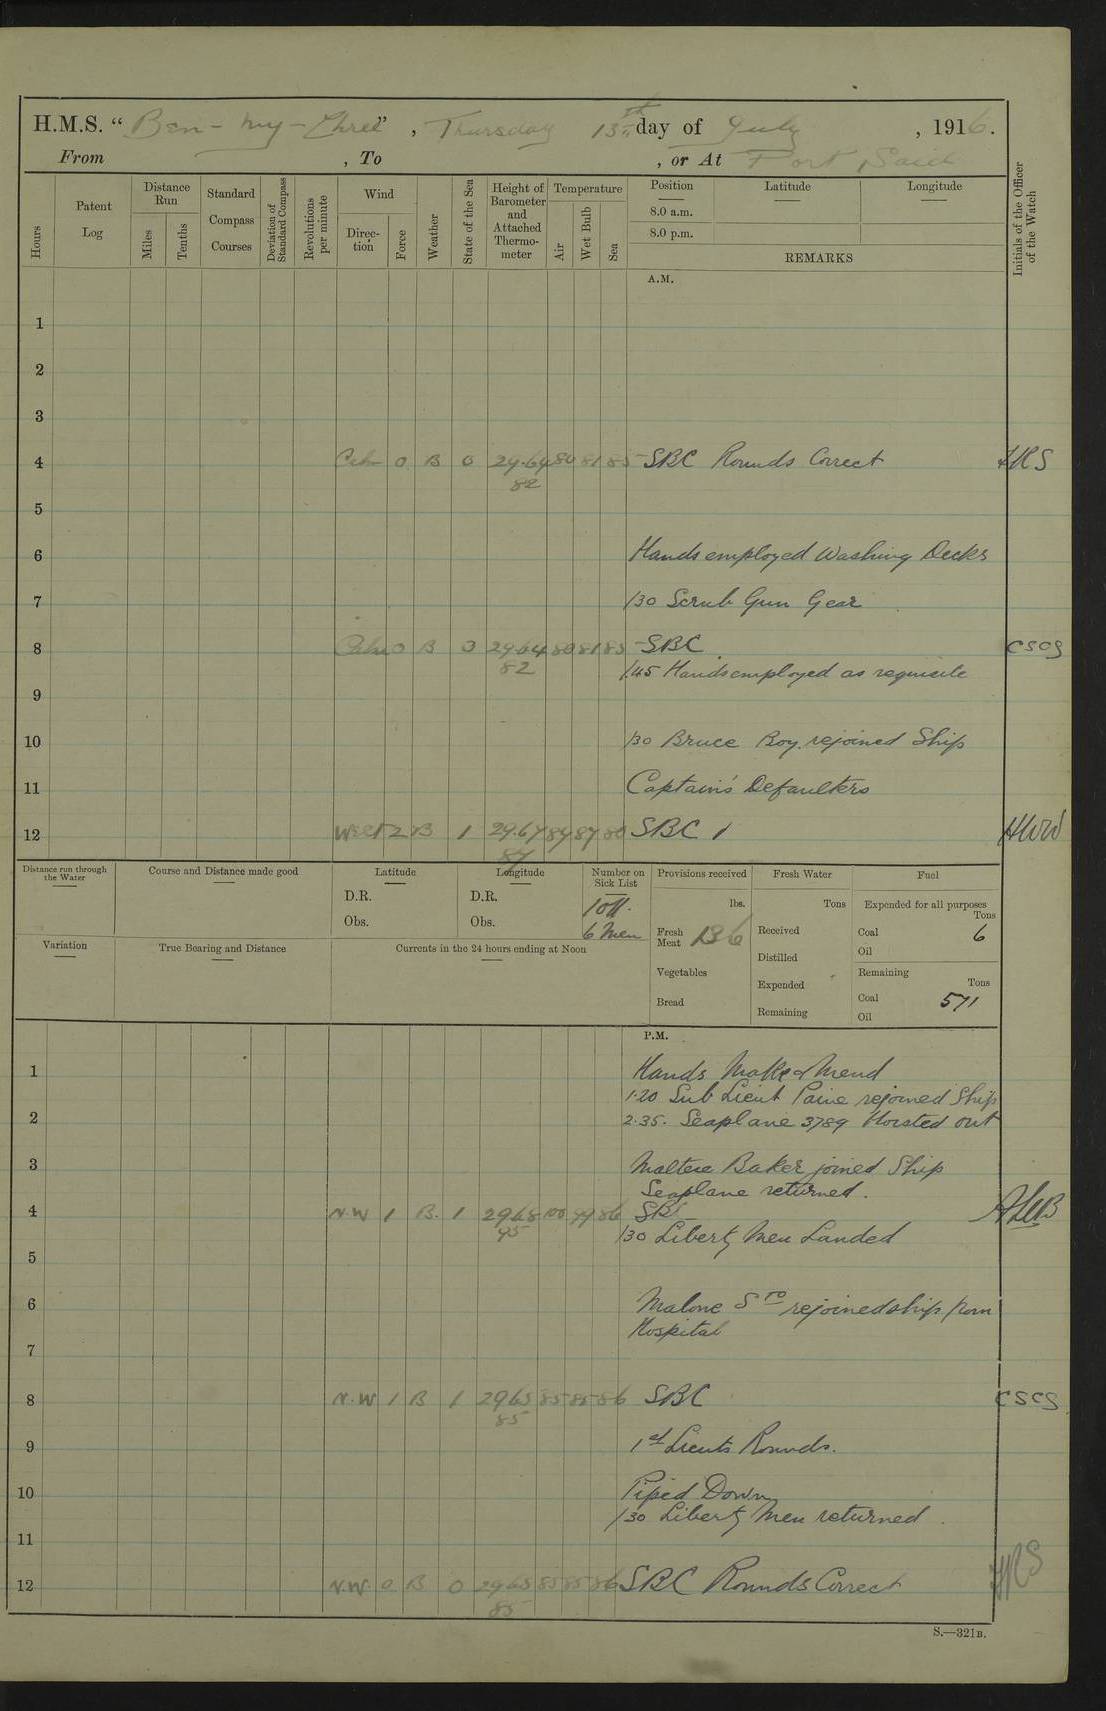 H.M.S. " Ben-my-Chree" , Thursday 13th day of July , 1916.
From , To , or At Port Said
Hours
Patent Log
Distance Run
Miles
Tenths
Standard Compass Courses
Deviation of Standard Compass
Revolutions per minute
Wind
Direction
Force
Weather
State of the Sea
Height of Barometer and Attached Thermometer
Temperature
Air
Wet Bulb
Sea
Position
8.0 a.m.
8.0 p.m.
Latitude
Longitude
REMARKS
Initials of the Officer of the Watch
A.M.
1
2
3
4 Calm 0 B 0 29.64 80 81 85 SBC Rounds Correct
82
5
6 Hands employed Washing Decks
7 /30 Scrub Gun Gear
8 Calm 0 B 0 29.64 80 81 85 SBC CSCS
82 /.45 Hands employed as requisite
9
10 /30 Bruce Boy. rejoined Ship
11 Captain's Defaulters
12 West 2 B 1 29.67 SBC 1
87
Distance run through the Water
Course and Distance made good
Latitude
D.R.
Obs.
Longitude
D.R.
Obs.
Number on Sick List
1 Off.
6 Men
Provisions received
lbs.
Fresh Meat 136
Vegetables
Bread
Fresh Water
Tons
Received
Distilled
Expended
Remaining
Fuel
Expended for all purposes
Tons
Coal 6
Oil
Remaining
Tons
Coal 571
Oil
Variation
True Bearing and Distance
Currents in the 24 hours ending at Noon
P.M.
1 Hands Make & Mend
1.20 Sub Lieut Paine rejoined Ship
2 2.35. Seaplane 3789 Hoisted out
3 Maltese Baker joined Ship
Seaplane returned.
4 N.W 1 B. 1 2968 100 99 86 SBC
95 /30 Liberty Men Landed
5
6 Malone Sto rejoined ship from
Hospital
7
8 N.W 1 B 1 2965 85 85 86 SBC CSCS
85
9 1st Lieuts Rounds.
10 Piped Down
/30 Liberty Men returned.
11
12 N.W. 0 B 0 2965 85 85 86 SBC Rounds Correct
85
S.—321B.